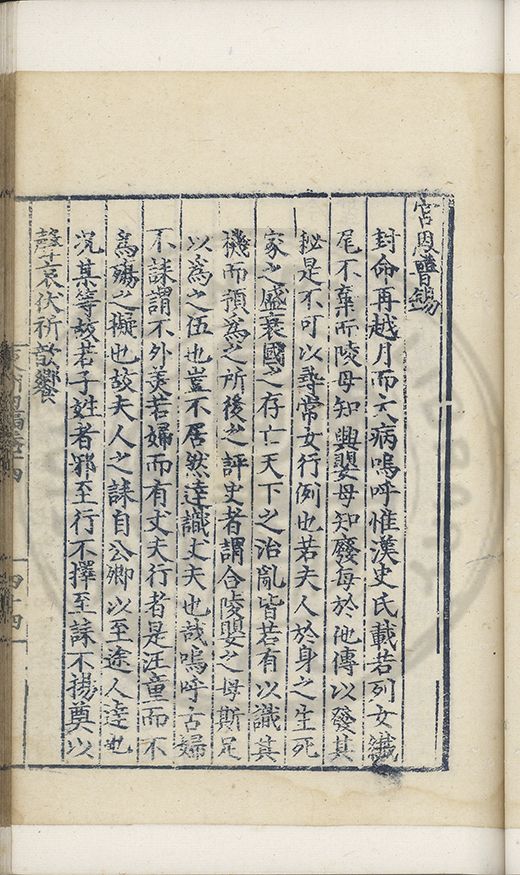 宮恩曹錫
封命再越月而大病嗚呼惟漢史氏載若列女纎
尾不棄而陵母知興嬰母知廢每於他傳以發其
秘是不可以尋常女行例也若夫人於身之生死
家之盛衰國之存亡天下之治亂皆若有以識其
禨而預爲之所後之評史者謂合陵嬰之母斯足
以爲之伍也豈不居然逹識丈夫也哉嗚呼古婦
不誄謂不外美若婦而有丈夫行者是汪童而不
爲殤之擬也故夫人之誄自公卿以至途人逹也
况某等故若子姓者邪至行不擇至誄不揚奠以
聲哀伏祈歆饗
四十四